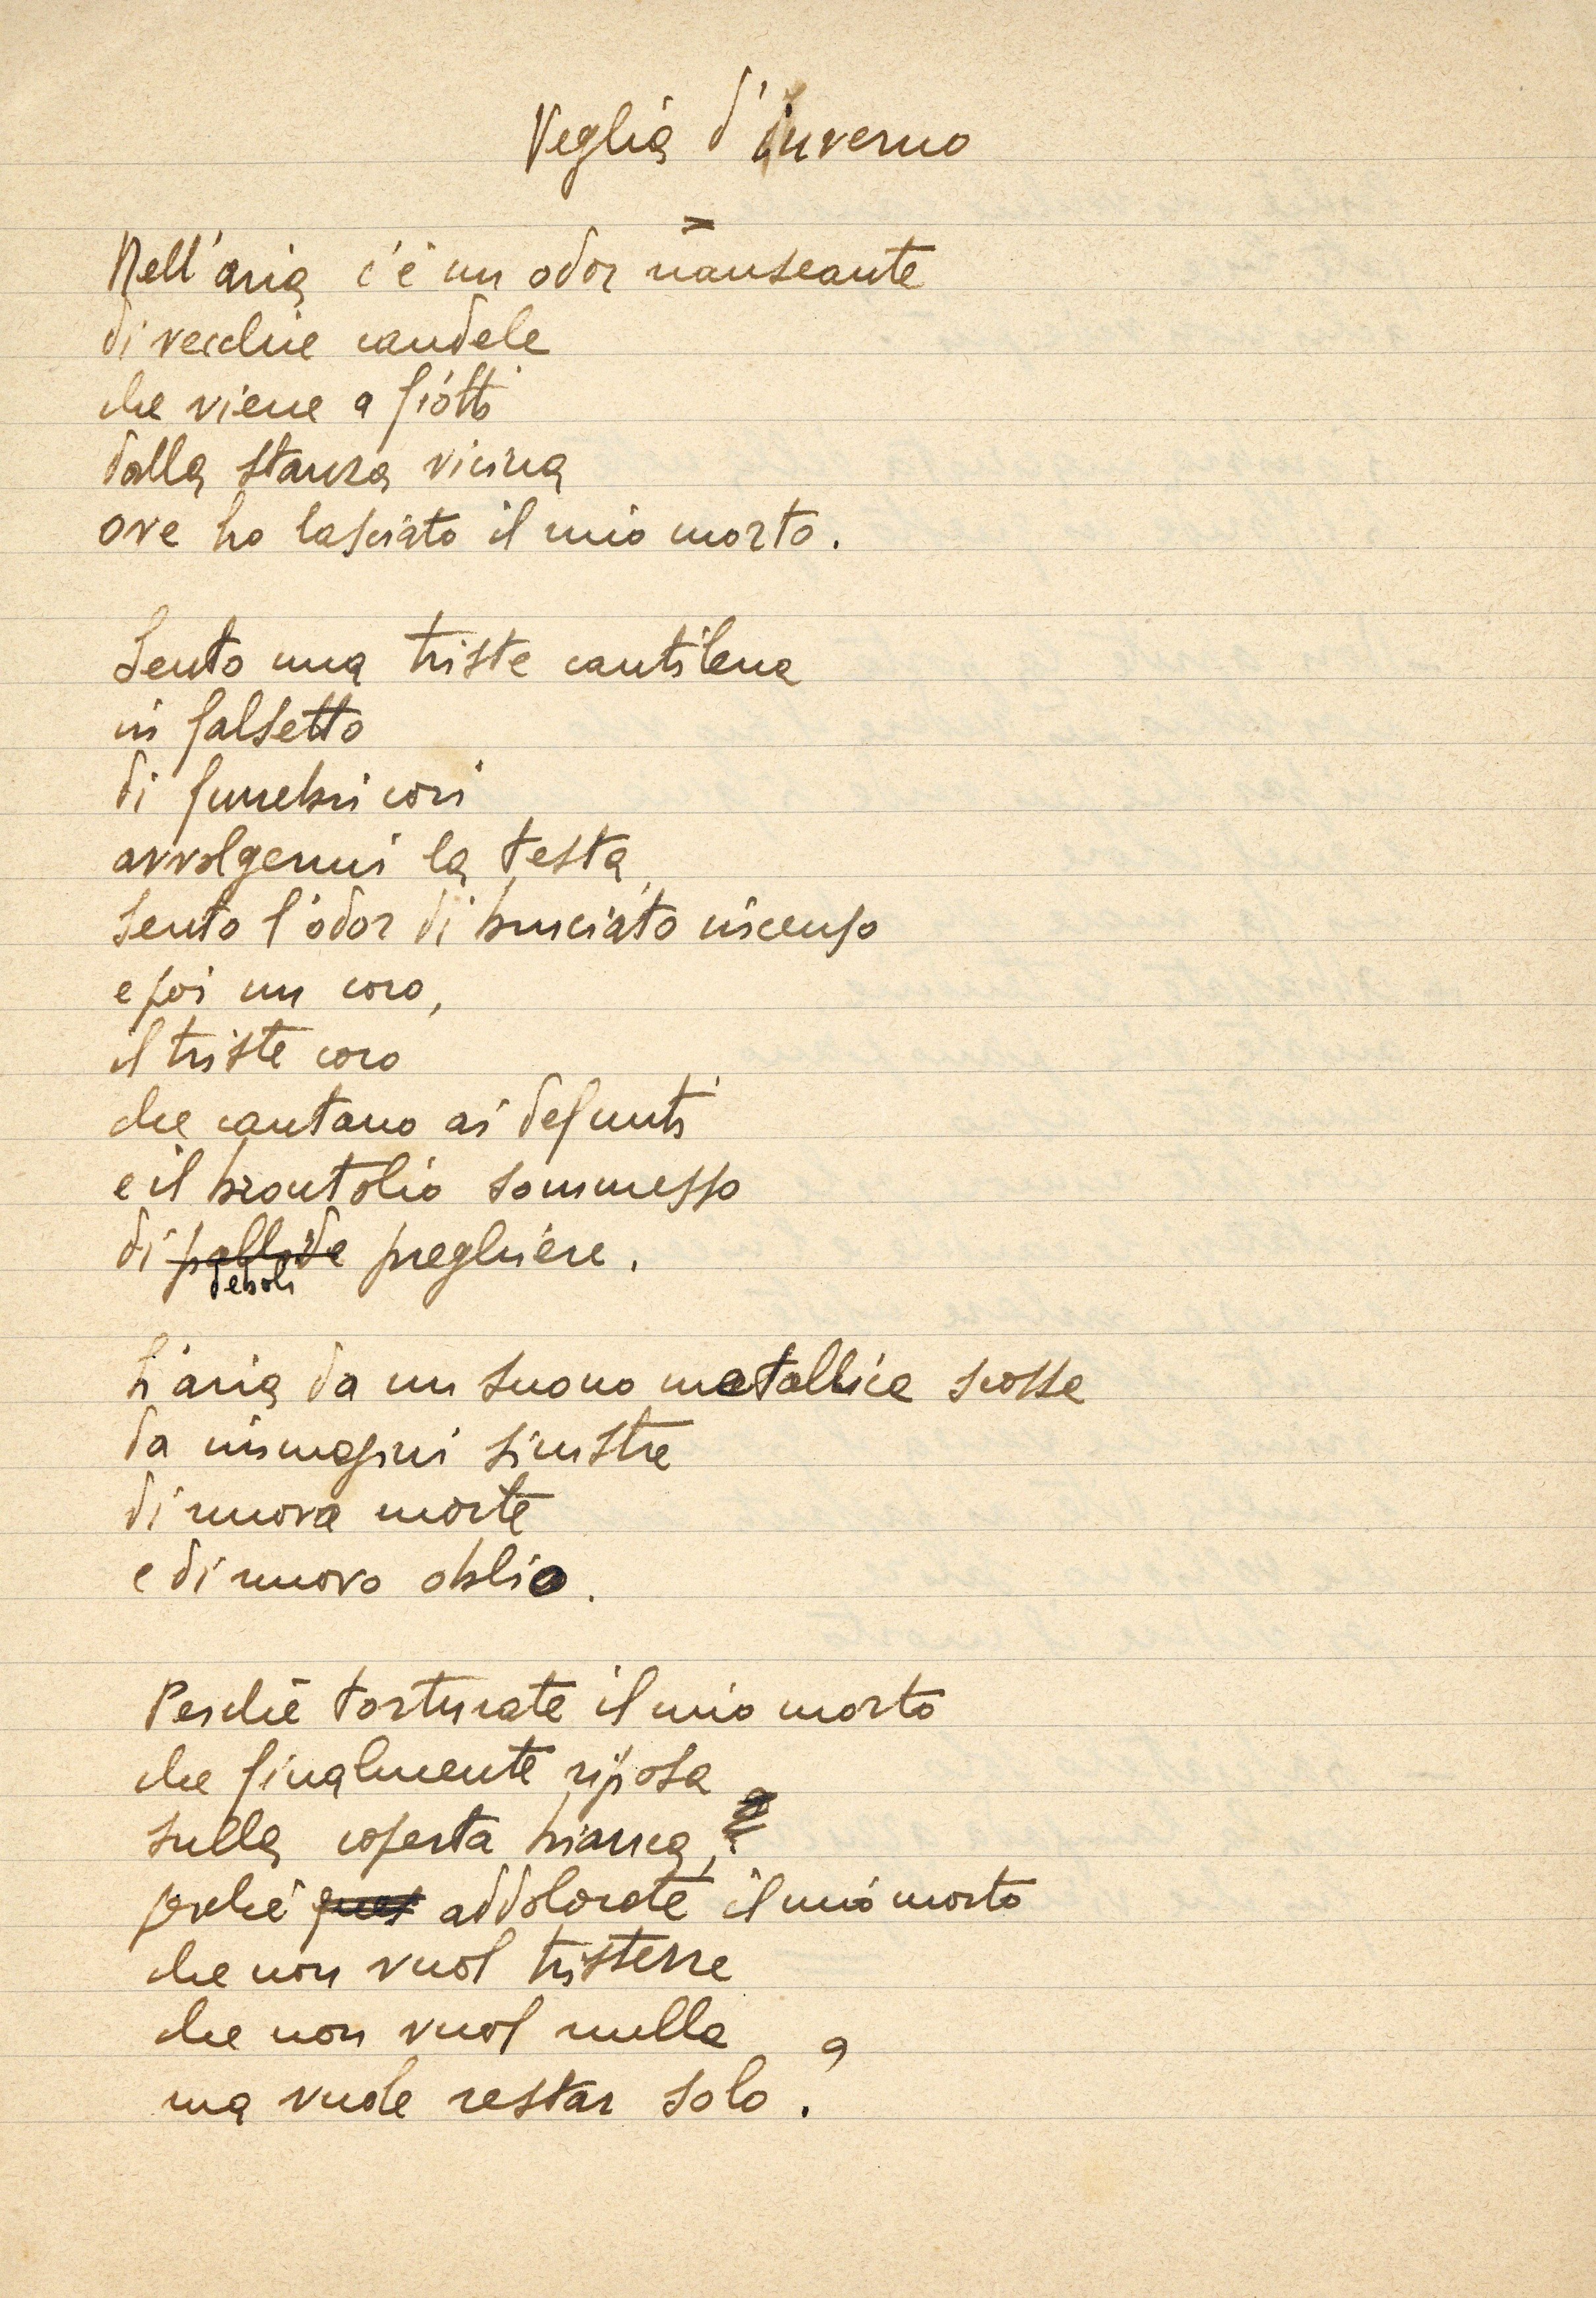 Veglia d'inverno
Nell'aria c'è un odor nauseante
di vecchie candele
che viene a fiotti
dalla stanza vicina
ove ho lasciato il mio morto.
Sento una triste cantilena
in falsetto
di funebri cori
avvolgermi la testa,
sento l'odor di bruciato incenso
e poi un coro,
il triste coro
che cantano ai defunti
e il brontolio sommesso
di pallide preghiere.
deboli
L'aria da un suono metallica scossa
da immagini sinistre
di nuova morte
e di nuovo oblio.
Perchè torturate il mio morto
che finalmente riposa
sulla coperta bianca,
perchè ques addolorate il mio morto
che non vuol tristezze
che non vuol nulla
ma vuole restar solo?